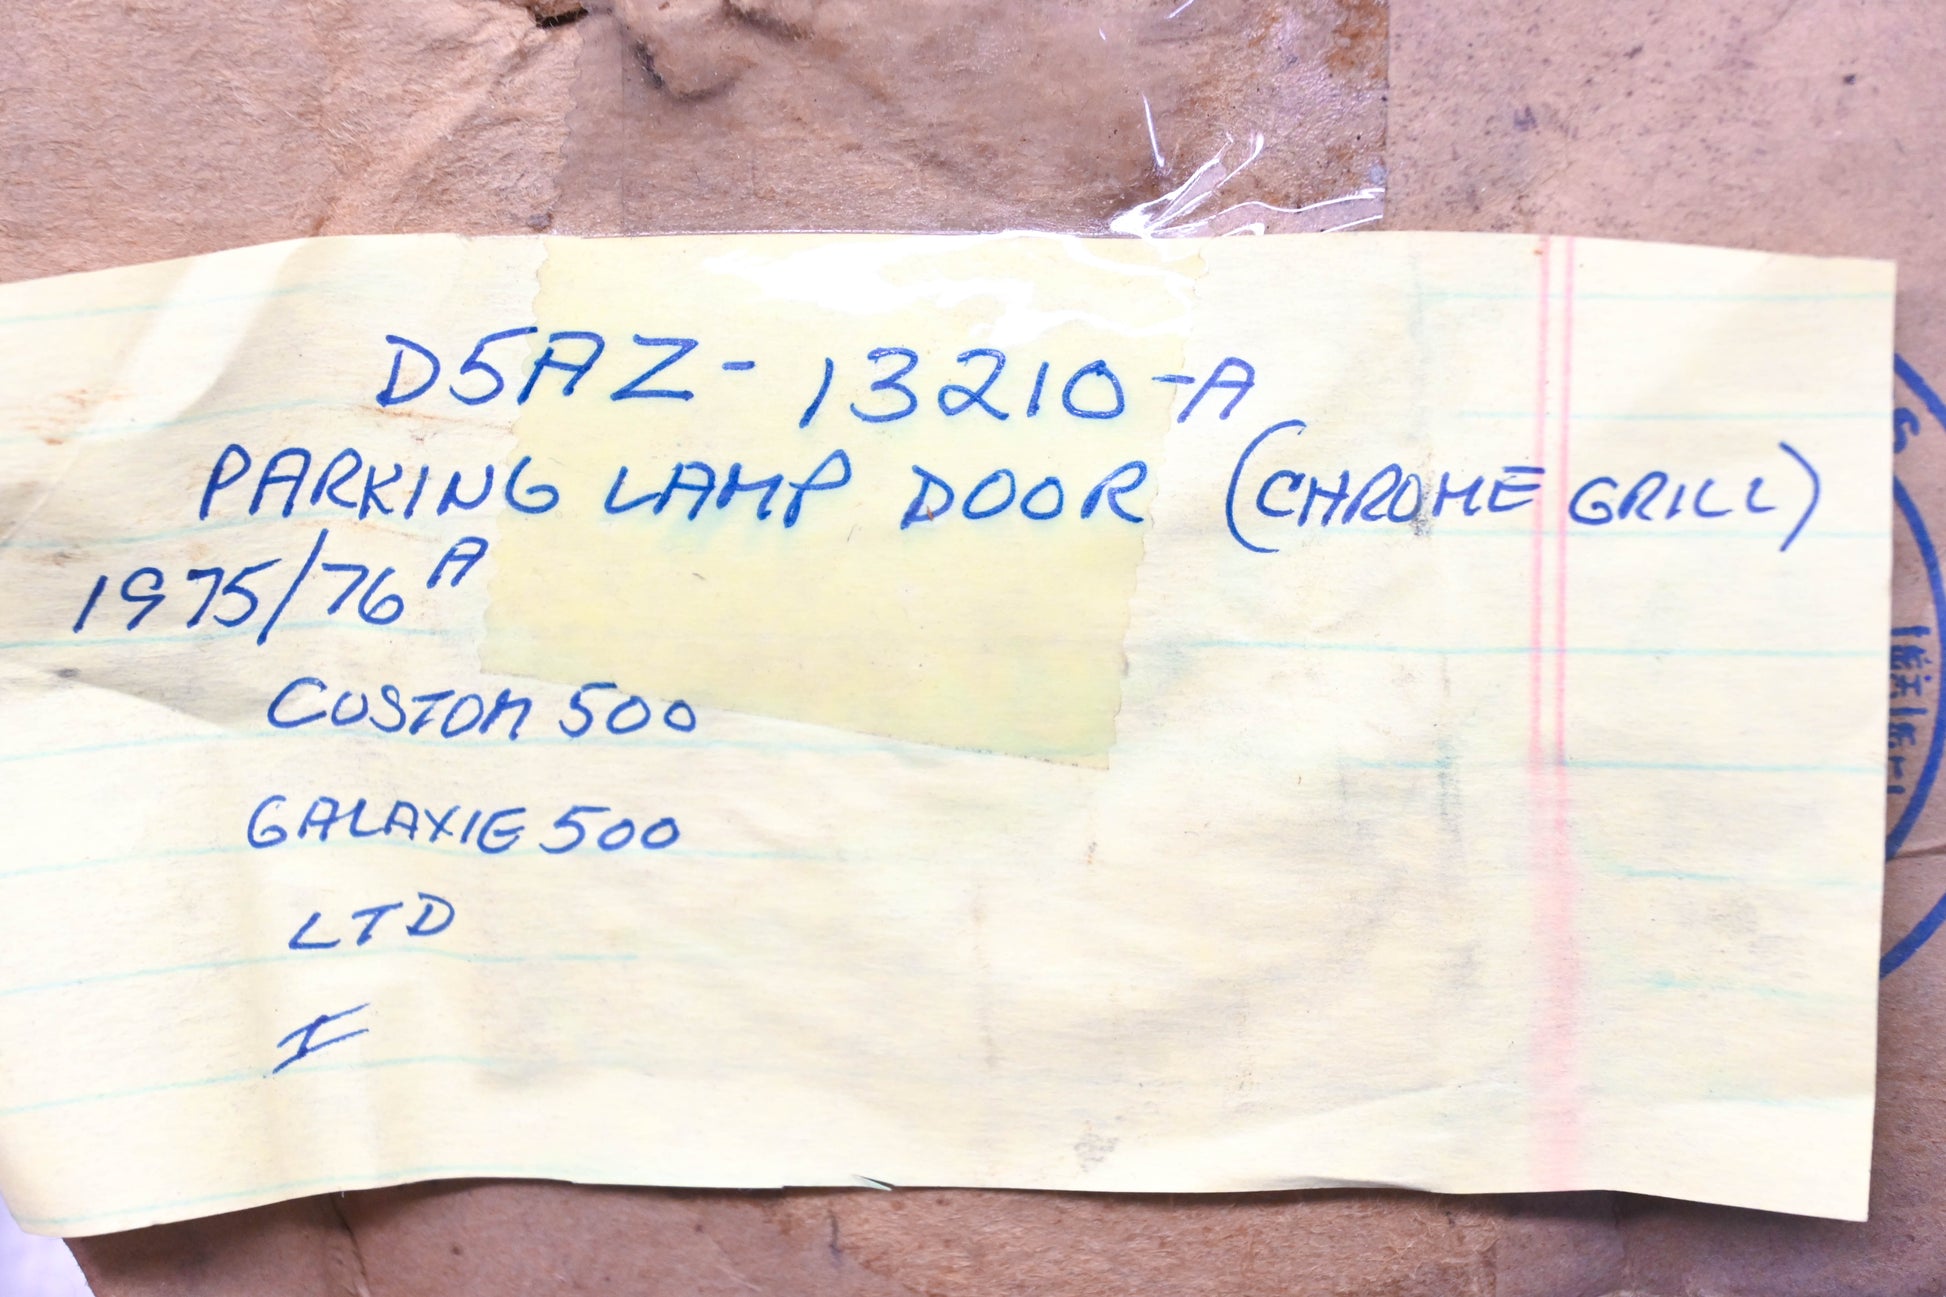 D5AZ-13210-A
PARKING LAMP DOOR (CHROME GRILL)
1975/76 A
CUSTOM 500
GALAXIE 500
LTD
I